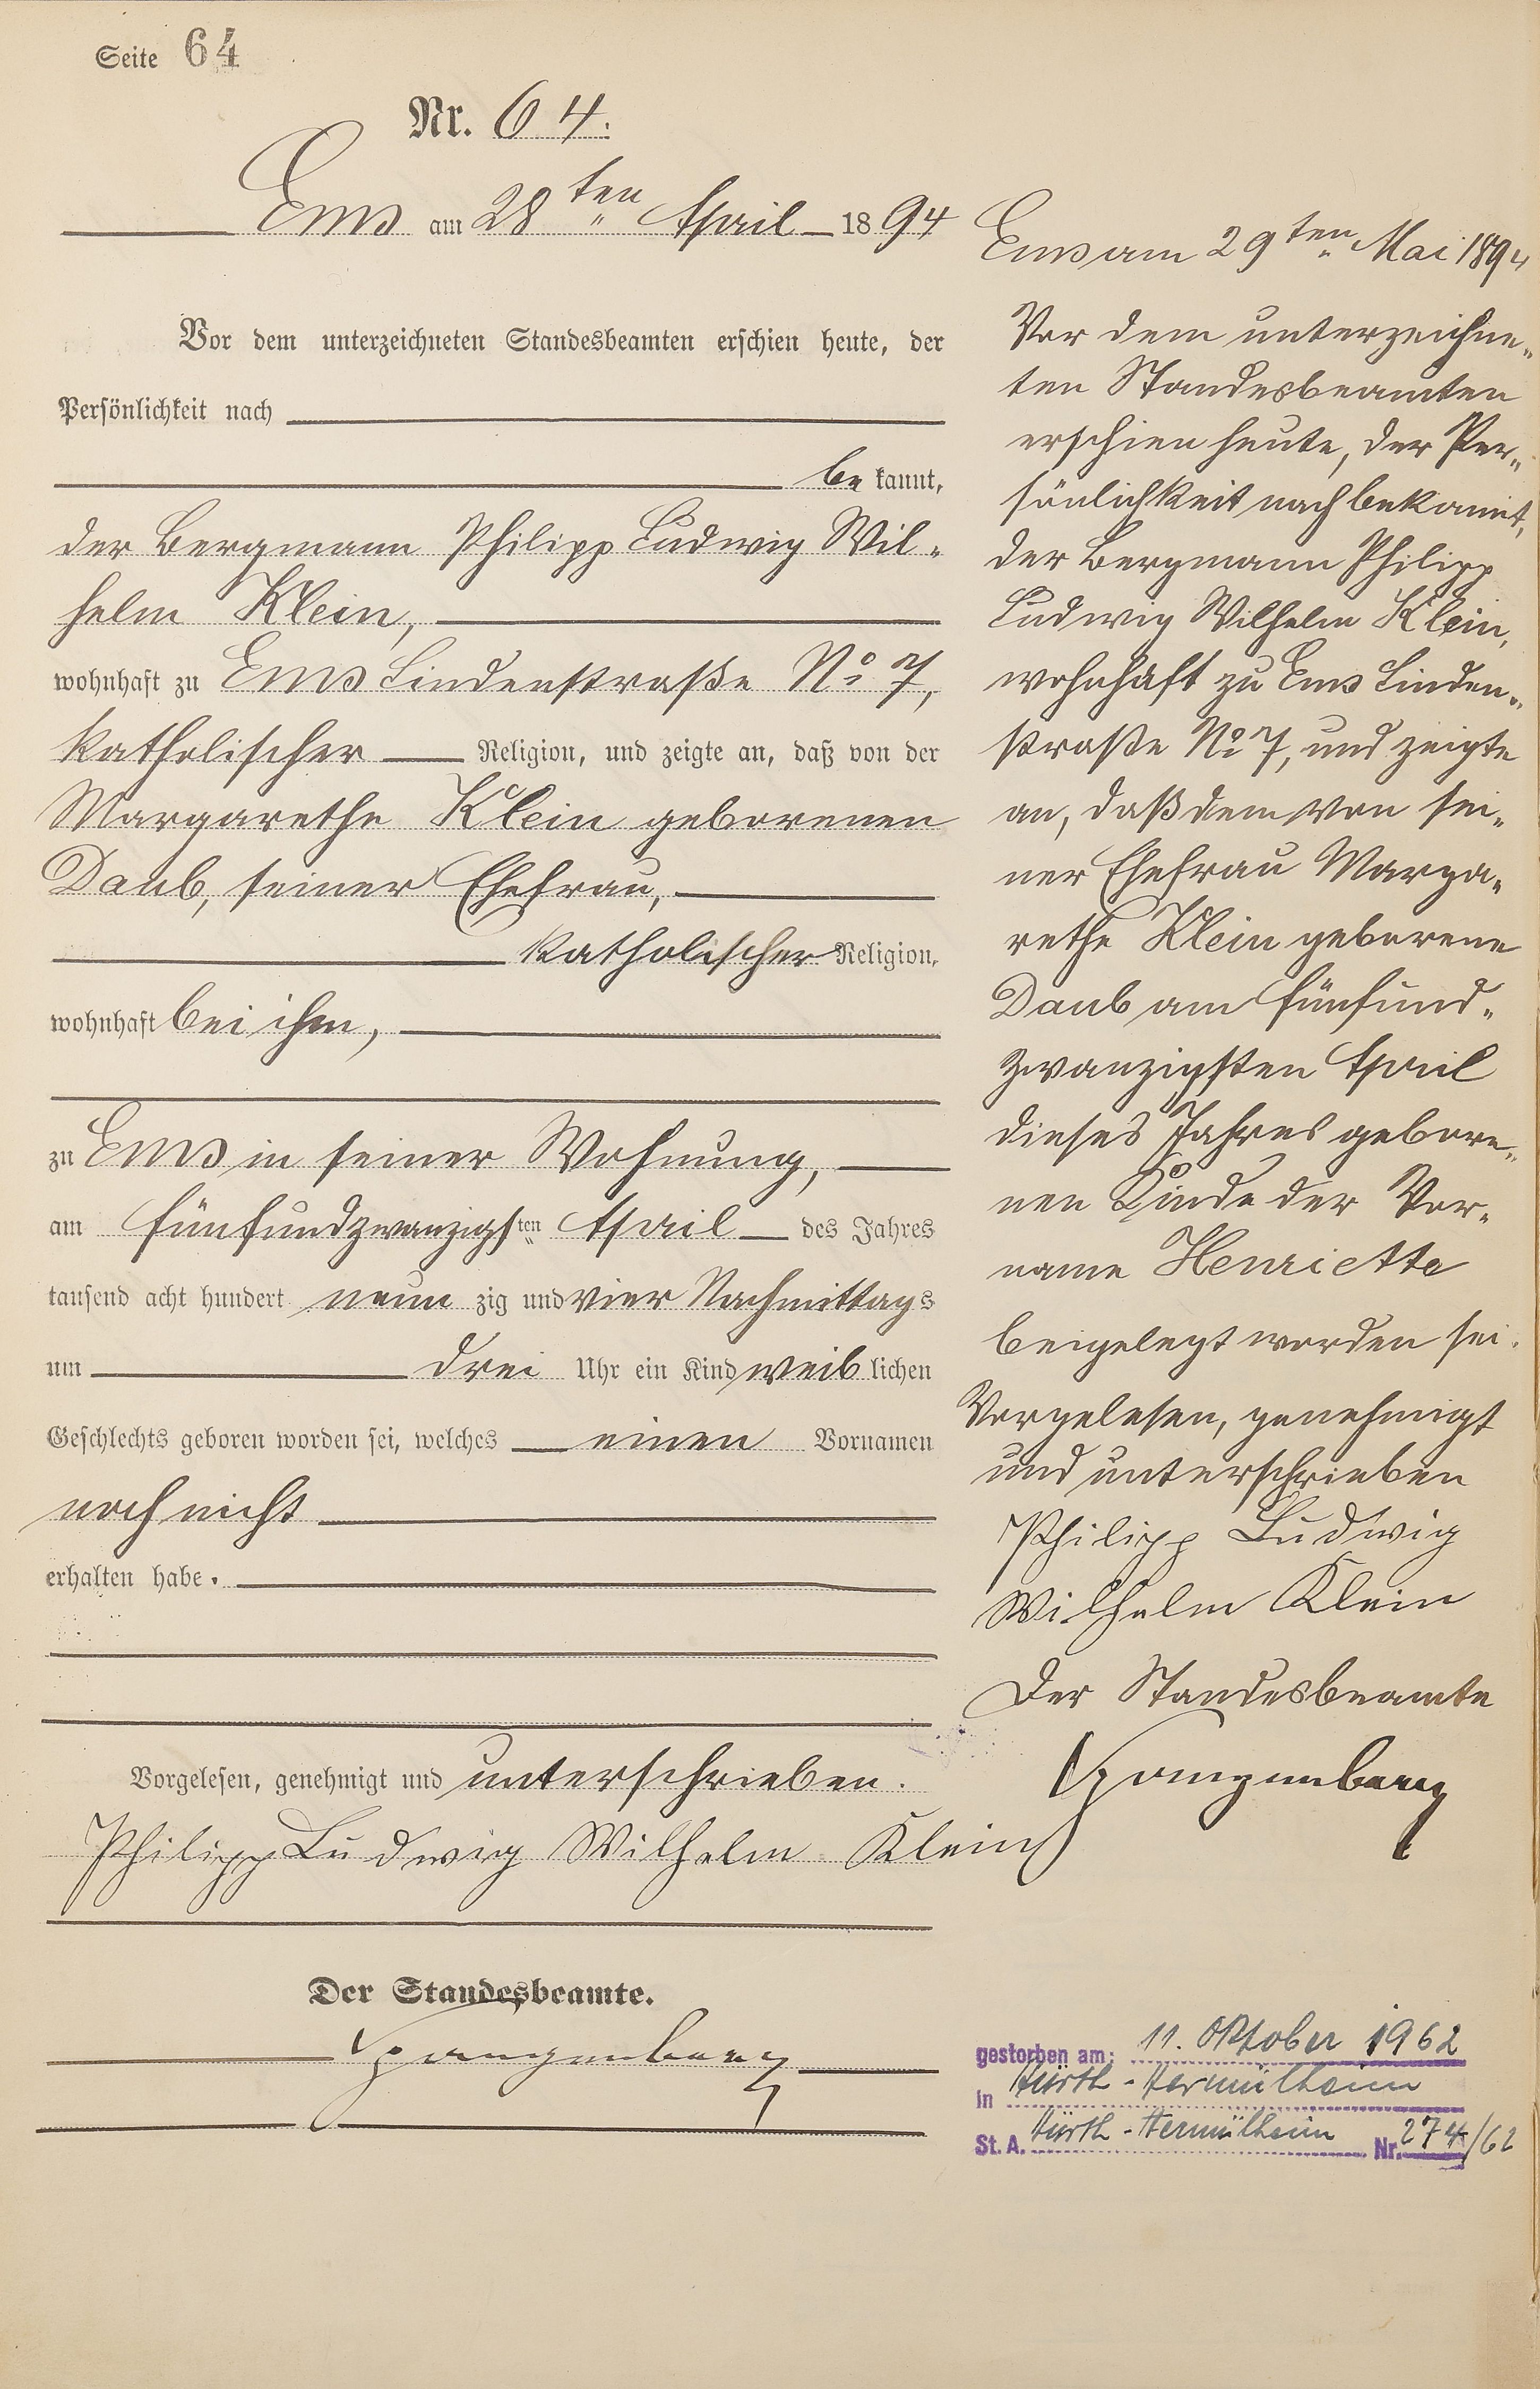 Seite 64
Nr. 64.
Ems am 28ten April 1894
Vor dem unterzeichneten Standesbeamten erschien heute, der
Persönlichkeit nach
be kannt,
der Bergmann Philipp Ludwig Wil-
helm Klein,
wohnhaft zu Ems Lindenstraße No 7,
katholischer Religion, und zeigte an, daß von der
Margarethe Klein geborenen
Daub, seiner Ehefrau,
katholischer Religion,
wohnhaft bei ihm,
zu Ems in seiner Wohnung,
am fünfundzwanzigsten April des Jahres
tausend acht hundert neun zig und vier Nachmittags
um drei Uhr ein Kind weib lichen
Geschlechts geboren worden sei, welches einen Vornamen
noch nicht
erhalten habe.
Vorgelesen, genehmigt und unterschrieben.
Philipp Ludwig Wilhelm Klein
Der Standesbeamte.
Spangenberg
Ems am 29ten Mai 1894
Vor dem unterzeichne-
ten Standesbeamten
erschien heute, der Per-
sönlichkeit nach bekannt,
der Bergmann Philipp
Ludwig Wilhelm Klein,
wohnhaft zu Ems Linden-
straße No 7, und zeigte
an, daß dem von sei-
ner Ehefrau Marga-
rethe Klein geborene
Daub am fünfund-
zwanzigsten April
dieses Jahres gebore-
nen Kinde der Vor-
name Henriette
beigelegt worden sei.
Vorgelesen, genehmigt
und unterschrieben
Philipp Ludwig
Wilhelm Klein
Der Standesbeamte
Spangenberg
gestorben am: 11. Oktober 1962
in Hürth-Hermülheim
St. A. Hürth-Hermülheim Nr. 274/62